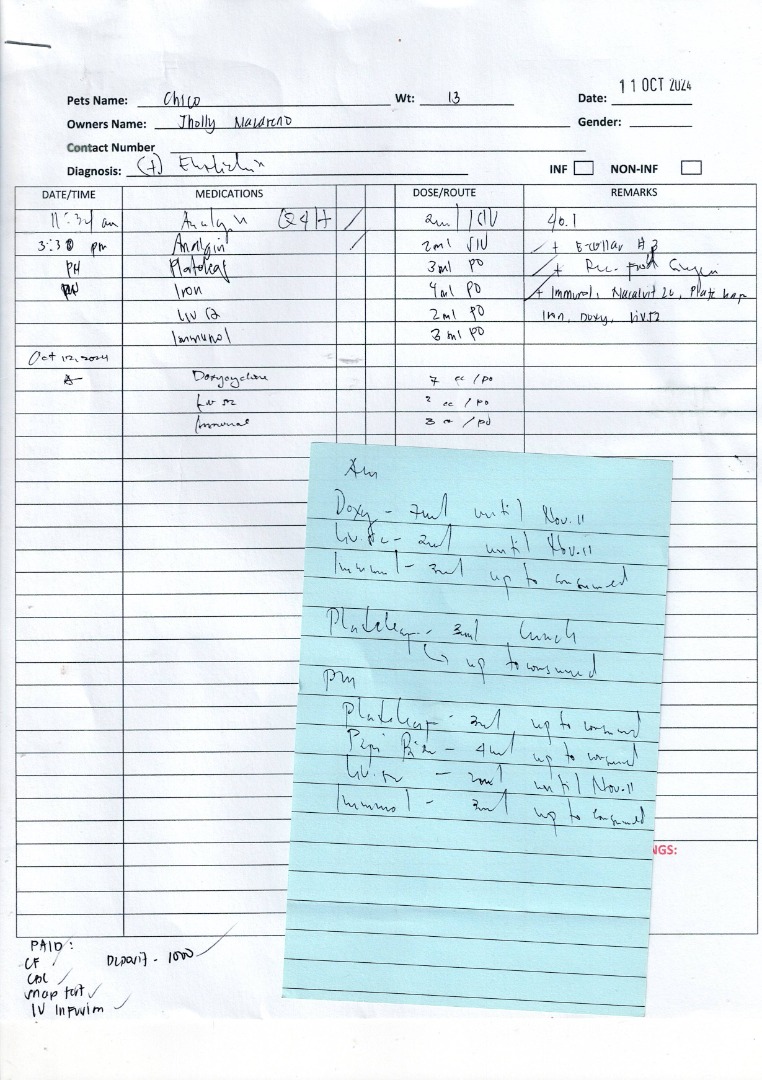 11 OCT 2024
Pets Name: Chico Wt: 13 Date:
Owners Name: Jholly Gender:
Contact Number
Diagnosis: (+) INF NON-INF
DATE/TIME MEDICATIONS DOSE/ROUTE REMARKS
am Analgin Q4H 2ml SIV 40.1
3:30 pm Analgin 2ml SIV + E-collar #3
PM Plateleaf 3ml PO + Rec. food
PM Iron 4ml PO + Immunol, 
Liv 52 2ml PO Iron, Doxy, Liv.52
Immunol 3ml PO
Oct 12, 2024
A Doxycycline 7 cc / po
Liv 52 2 cc / po
Immunol 3 cc / po
Am
Doxy - 7ml until Nov. 11
Liv.52 - 2ml until Nov. 11
Immunol - 3ml up to consumed
Plateleaf - 3ml lunch
↳ up to consumed
pm
Plateleaf - 3ml up to consumed
Papi - 4ml up to consumed
Liv.52 - 2ml until Nov. 11
Immunol - 3ml up to consumed
NGS:
PAID:
CF
CBC
snap test
IV
1000